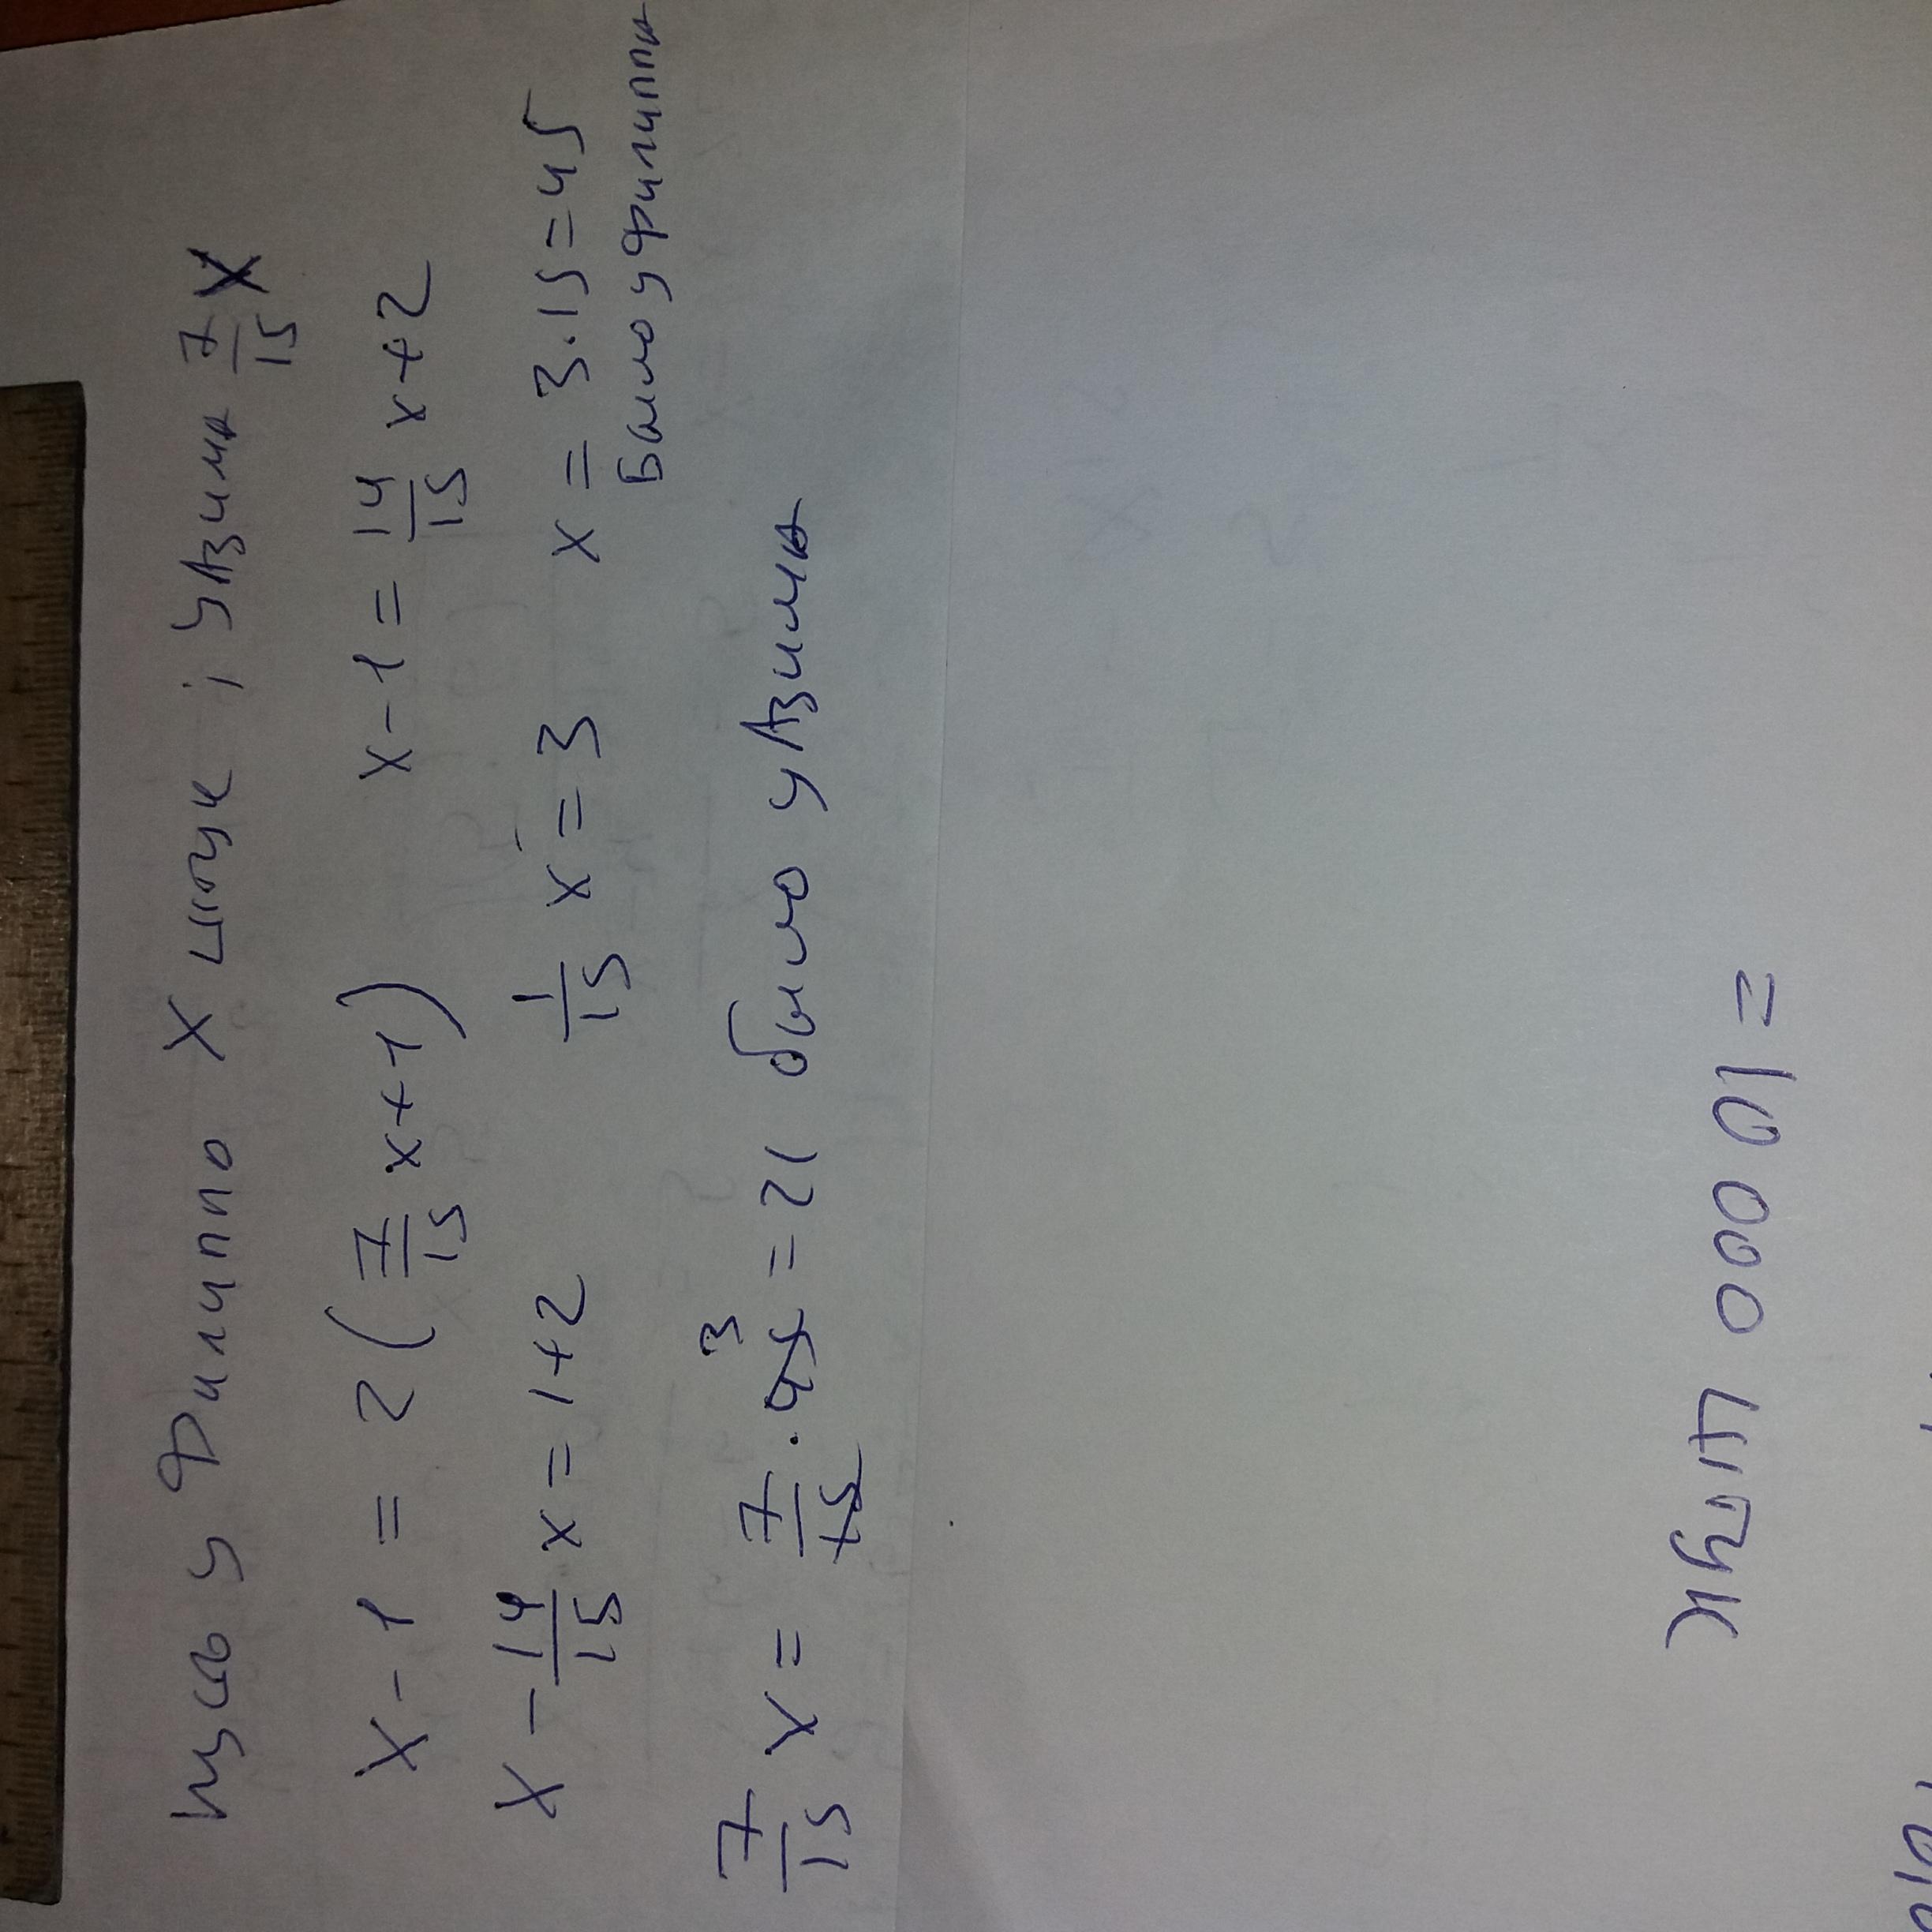 Пусь у Филиппа X штук ; У Азима 7/15 X
X - 1 = 2 (7/15 x + 1) x - 1 = 14/15 x + 2
X - 14/15 x = 1 + 2 1/15 x = 3 x = 3 · 15 = 45
Было у Филиппа
7/15 X = 7/15 · 45 3 = 21 было у Азима
= 10 000 штук